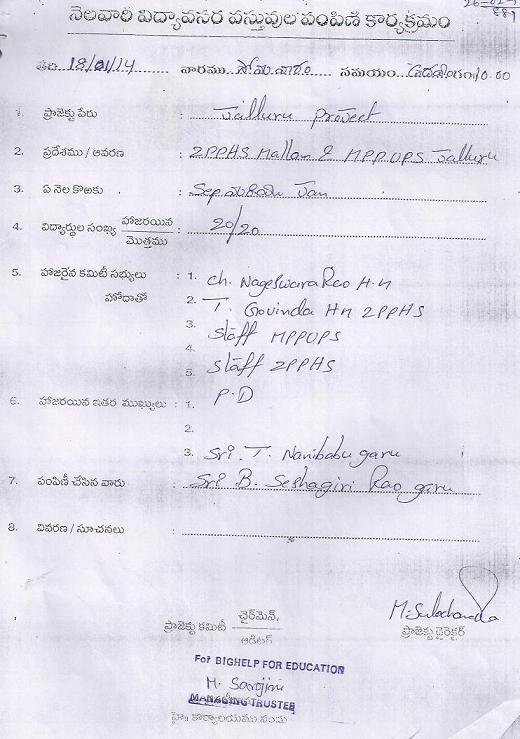 26-02-1
నెలవారీ విద్యావసర వస్తువుల పంపిణీ కార్యక్రమం
తేది 18/01/14 వారము సోమవారం సమయం ఉదయంగం॥10.00
1. ప్రాజెక్టు పేరు : Jalluru Project
2. ప్రదేశము / ఆవరణ : ZPPHS Mallam & MPPUPS Jalluru
3. ఏ నెల కొఱకు : Sep మరియు Jan
4. విద్యార్థుల సంఖ్య హాజరయిన / మొత్తము : 20/20
5. హాజరైన కమిటీ సభ్యులు : 1. Ch. NageswaraRao H.M
హోదాతో 2. T. Govinda HM ZPPHS
3. Staff MPPUPS
4.
5. Staff ZPPHS
6. హాజరయిన ఇతర ముఖ్యులు : 1. P.D
2.
3. Sri. T. Nanibabu garu
7. పంపిణీ చేసిన వారు : Sri B. Seshagiri Rao garu
8. వివరణ / సూచనలు :
M. Sulochana
ప్రాజెక్టు కమిటీ ఛైర్మెన్,
ఆడిటర్
ప్రాజెక్టు డైరెక్టర్
For BIGHELP FOR EDUCATION
M. Sarojini
MANAGING TRUSTEE
హై॥ కార్యాలయము నందు